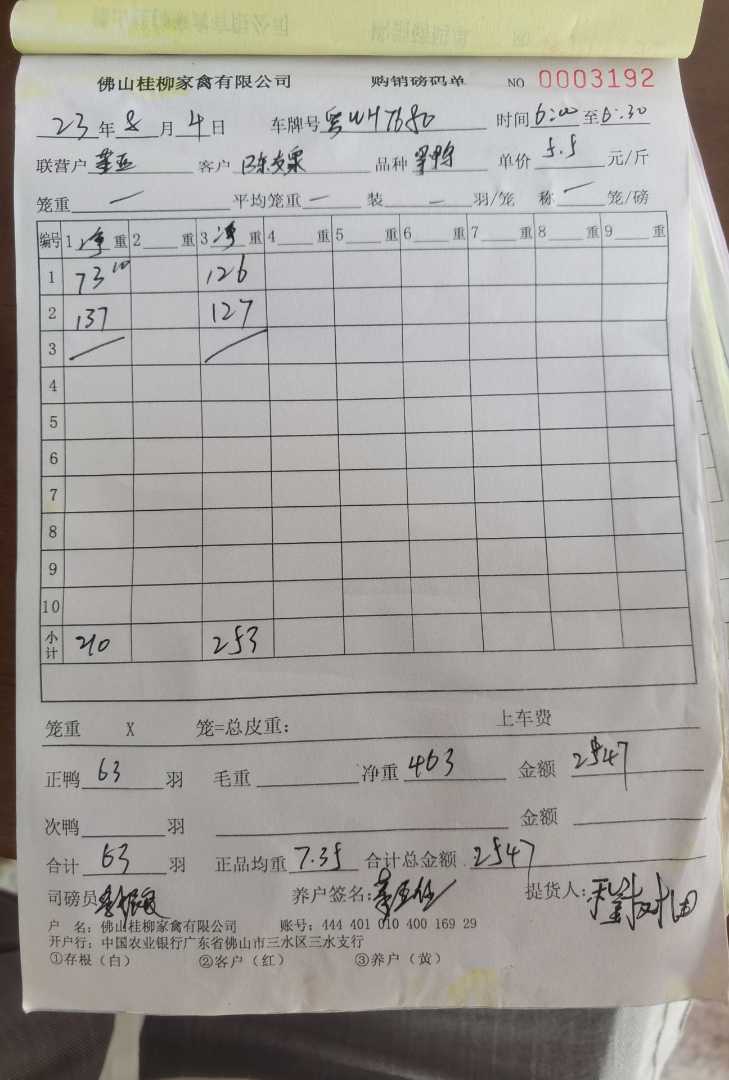 佛山桂柳家禽有限公司 购销磅码单 NO 0003192
23年8月4日 车牌号粤WH7680 时间6:00至6:30
联营户 客户 品种 单价5.5元/斤
笼重一 平均笼重一 装一羽/笼 称一笼/磅
编号 1净重 2重 3净重 4重 5重 6重 7重 8重 9重
1 73 10 126
2 137 127
3
4
5
6
7
8
9
10
小计 210 253
笼重 X 笼=总皮重: 上车费
正鸭63羽 毛重 净重463 金额2547
次鸭羽 金额
合计63羽 正品均重7.35 合计总金额2547
司磅员 养户签名: 提货人:
户 名: 佛山桂柳家禽有限公司 账号: 444 401 010 400 169 29
开户行: 中国农业银行广东省佛山市三水区三水支行
①存根（白） ②客户（红） ③养户（黄）